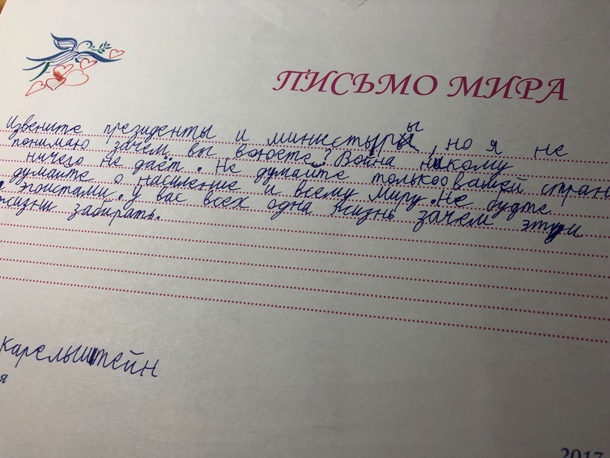 ПИСЬМО МИРА
Извените президенты и министуры, но я не
понимаю зачем вы воюете? Война никому
ничего не даёт. Не думайте только о вашей стран
думайте о население и всему миру. Не будте
эгоистами. У вас всех одна жизнь зачем эти
жизни забирать.
Карельштейн
я
2017